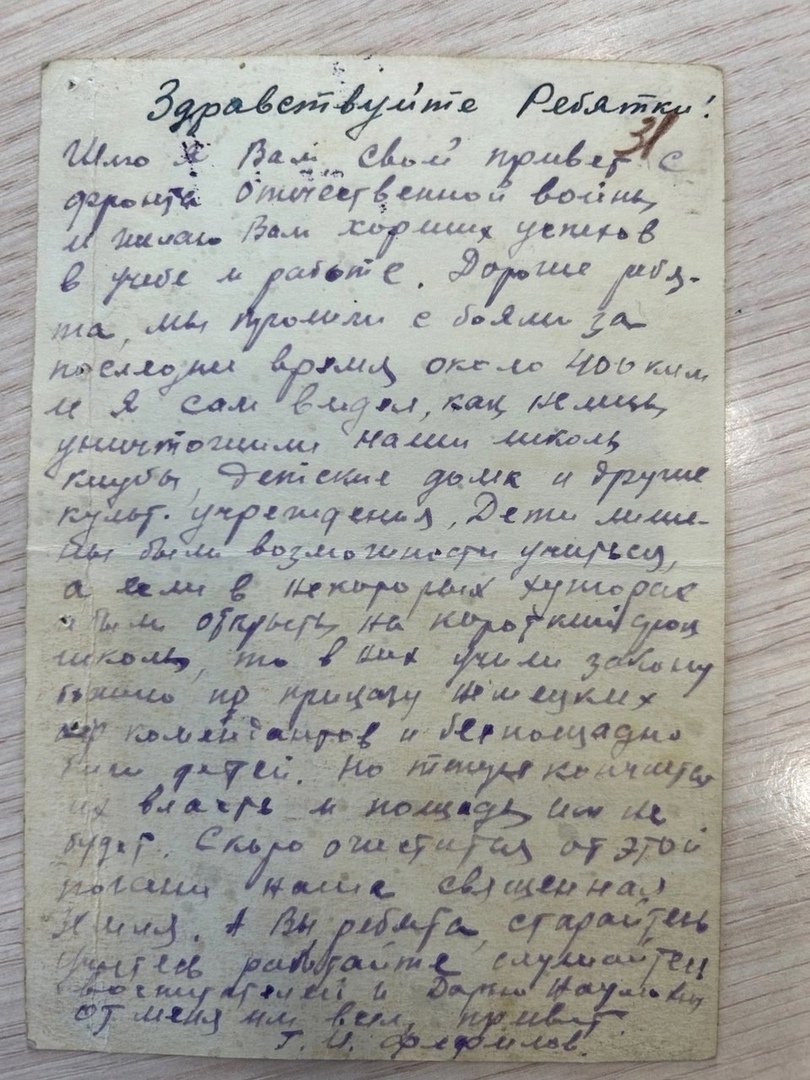 Здравствуйте Ребятки!
31
Шлю я Вам свой привет с
фронта отечественной войны
и желаю Вам хороших успехов
в учебе и работе. Дорогие ребя-
та, мы прошли с боями за
последние время около 400 килм
и я сам видел, как немцы
уничтожили наши школы
клубы, детские дома и другие
культ. учреждения, Дети лише-
ны были возможности учиться,
а если в некоторых хуторах
и были открыты на короткий срок
школы, то в них учили закону
божию по приказу немецких
комендантов и беспощадно
били детей. Но теперь кончается
их власть и пощады им не
будет. Скоро очистится от этой
погани наша священная
земля. А Вы ребята, старайтесь
учитесь работайте, слушайтесь
воспитателей и Дарью Наумовну
от меня им всем привет.
Г. И.